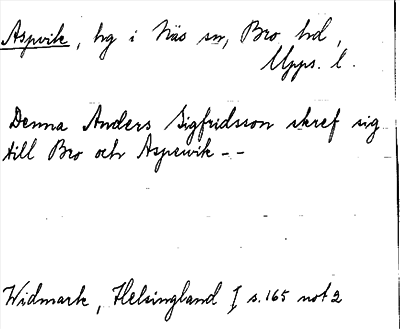 Aspvik, hg i Näs sn, Bro hd,
Upps. l.
Denna Anders Sigfridsson skref sig
till Bro och Aspewik --
Widmark, Helsingland I s. 165 not 2